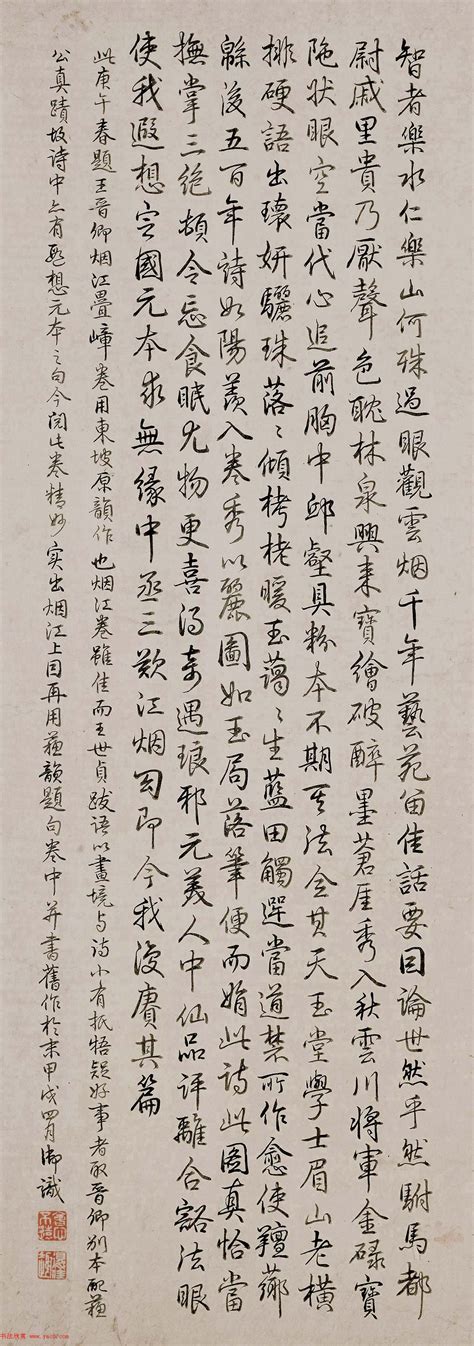 智者樂水仁樂山何殊過眼觀雲烟千年藝苑留佳話要因論世然乎然駙馬都
尉戚里貴乃厭聲色耽林泉興来寶繪破醉墨蒼厓秀入秋雲川將軍金碌寶
陋狀眼空當代心追前胸中邱壑具粉本不期天法合其天玉堂學士眉山老橫
排硬語出瓌妍驪珠落〻傾栲栳暖玉藹〻生藍田觸選當道禁所作愈使羶薌
緜後五百年詩如陽羨入卷秀以麗圖如玉局落筆便而娟此詩此圖真恰當
撫掌三絶頓令忘食眠尤物更喜得奇遇琅邪元美人中仙品評離合豁法眼
使我遐想定國元本求無緣中丞三歎江烟句即今我復賡其篇
此庚午春題王晉卿烟江疊嶂卷用東坡原韻作也烟江卷雖佳而王世貞跋語以畫境与詩小有抵牾疑好事者取晉卿別本配蘓
公真蹟故詩中亦有遐想元本之句今閱此卷精妙实出烟江上因再用蘓韻題句卷中并書舊作於末甲戌四月御識
书法欣赏 www.yac8.com